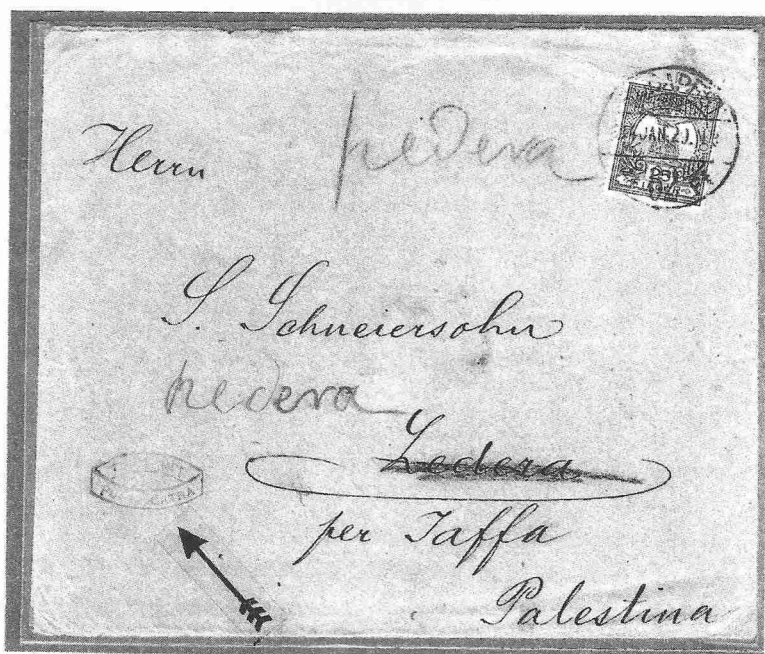 Herrn
hedera
JAN. 2
25
S. Schneiersohn
hedera
Ledera
per Jaffa
Palestina